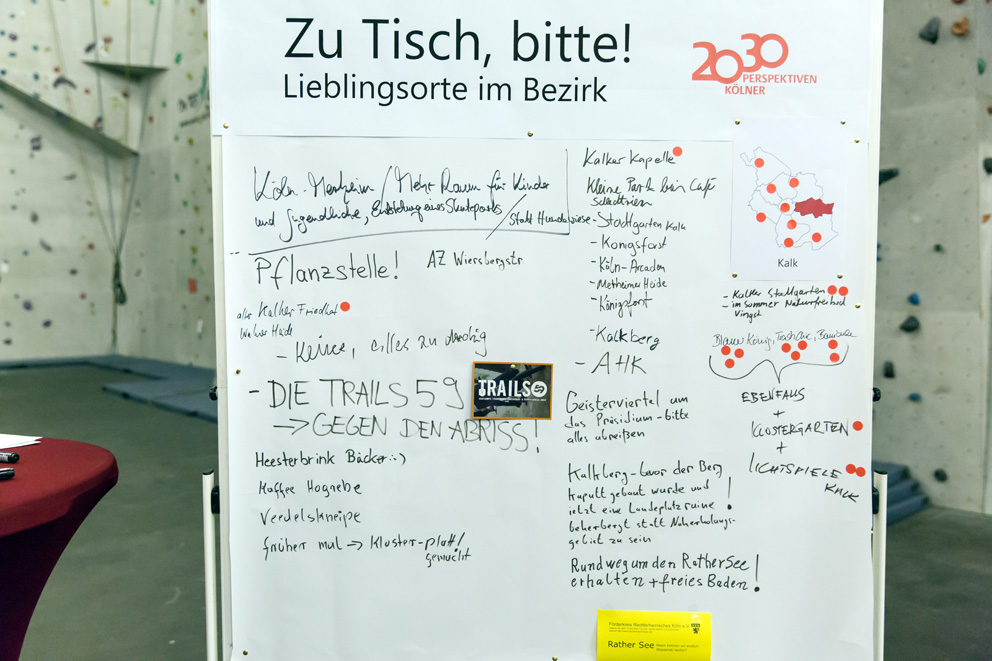 Zu Tisch, bitte!
Lieblingsorte im Bezirk
2030
PERSPEKTIVEN
KÖLNER
Köln-Merheim / Mehr Raum für Kinder
und Jugendliche, Entstehung eines Skateparks
/ Statt Hundewiese
Pflanzstelle! AZ Wiersbergstr.
alte Kalker Friedhof
Wahner Heide
- Keine, alles zu dreckig
- DIE TRAILS 59
→ GEGEN DEN ABRISS!
TRAILS 59
Heesterbrink Bäcker :-)
Kaffee Hognebe
Veedelskneipe
früher mal → Kloster-platt/
gemacht
Kalker Kapelle
Kleine Park beim Café
- Stadtgarten Kalk
- Königsforst
- Köln-Arcaden
- Merheimer Heide
- Königsforst
- Kalkberg
- AHK
Geisterviertel um
das Präsidium - bitte
alles abreißen
Kalkberg - bevor der Berg
kaputt gebaut wurde und
jetzt eine Landeplatzruine !
beherbergt statt Naherholungs-
gebiet zu sein
Rundweg um den Rather See
erhalten + freies Baden !
Kalk
- Kalker Stadtgarten
- im Sommer Naturfreibad
Vingst
Blauer König, TrashChic, Bambule
EBENFALLS
+
KLOSTERGARTEN
+
LICHTSPIELE
KALK
Förderkreis Rechtsrheinisches Köln e.V.
Rather See